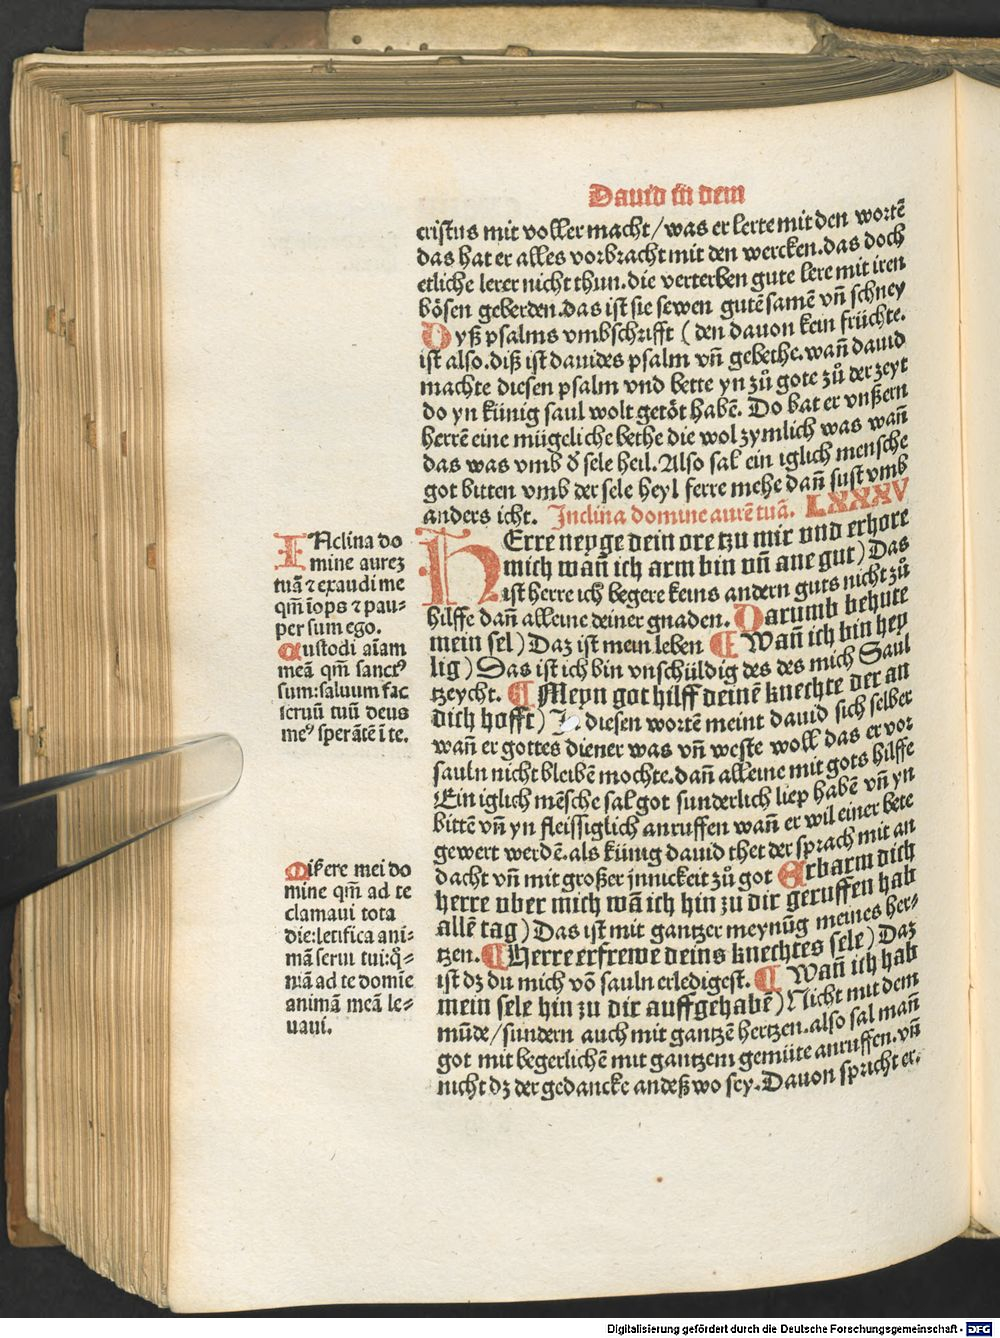 Dauid in dem
cristus mit voller macht/was er lerte mit den wortē
das hat er alles vorbracht mit den wercken.das doch
etliche lerer nicht thun.die verterben gute lere mit iren
bösen geberden.das ist sie sewen gutē samē vñ schney
Dyß psalms vmbschrifft (den dauon kein früchte.
ist also.diß ist dauides psalm vñ gebethe.wañ dauid
machte diesen psalm vnd bette yn zů gote zů der zeyt
do yn künig saul wolt getöt habē. Do bat er vnßern
herrē eine mügeliche bethe die wol zymlich was wañ
das was vmb d̕ sele heil.Also sal ein iglich mensche
got bitten vmb der sele heyl ferre mehe dañ sust vmb
anders icht. Inclina domine aurē tuā. LXXXV
HErre neyge dein ore tzu mir vnd erhore
mich wañ ich arm bin vñ ane gut) Das
ist herre ich begere keins andern guts nicht zů
hilffe dañ alleine deiner gnaden. Darumb behute
mein sel) Daz ist mein leben ⸿ Wañ ich bin hey
lig) Das ist ich bin vnschüldig des des mich Saul
tzeycht. ⸿ Meyn got hilff deinē knechte der an
dich hofft) In diesen wortē meint dauid sich selber
wañ er gottes diener was vñ weste woll das er vor
sauln nicht bleibē mochte.dañ alleine mit gots hilffe
Ein iglich mēsche sal got sunderlich liep habē vñ yn
bittē vñ yn fleissiglich anruffen wañ er wil einer bete
gewert werdē.als künig dauid thet der sprach mit an
dacht vñ mit großer jnnickeit zů got Erbarm dich
herre vber mich wā ich hin zu dir geruffen hab
allē tag) Das ist mit gantzer meynūg meines her⸗
tzen. ⸿ Herre erfrewe deins knechtes sele) Daz
ist dz du mich vō sauln erledigest. ⸿ Wañ ich hab
mein sele hin zu dir auffgehabē) Nicht mit dem
mūde/sundern auch mit gantzē hertzen.also sal mañ
got mit begerlichē mit gantzem gemüte anruffen.vñ
nicht dz der gedancke andeß wo sey.Dauon spricht er.
INclina do
mine aurez
tuā ⁊ exaudi me
qm̄ īops ⁊ pau⸗
per sum ego.
Custodi aīam
meā qm̄ sanctꝰ
sum:saluum fac
seruū tuū deus
meꝰ sperātē ī te.
Misere mei do
mine qm̄ ad te
clamaui tota
die:letifica ani⸗
mā serui tui:qm̄⸗
niā ad te domīe
animā meā le⸗
uaui.
Digitalisierung gefördert durch die Deutsche Forschungsgemeinschaft - DFG